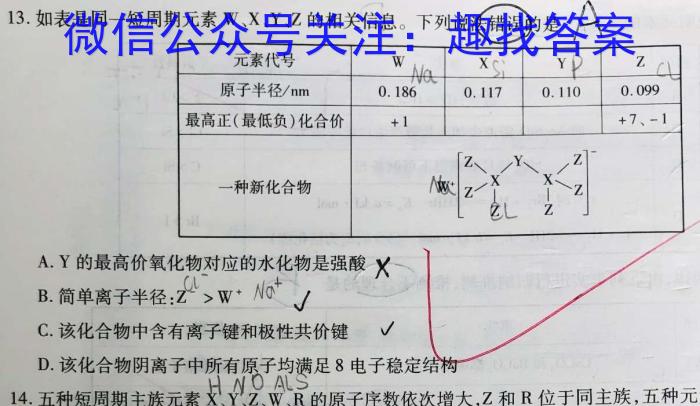 13. 如表是同一短周期元素 W、X、Y、Z 的相关信息。下列说法错误的是 A
微信公众号关注：趣找答案
元素代号 W X Y Z
Na Si P CL
原子半径/nm 0.186 0.117 0.110 0.099
最高正(最低负)化合价 +1 +7、-1
一种新化合物
Z Y Z -
X X
Z Z
Z Z
CL
A. Y 的最高价氧化物对应的水化物是强酸 X
Cl⁻ Na⁺
B. 简单离子半径:Z⁻>W⁺ ✓
C. 该化合物中含有离子键和极性共价键 ✓
D. 该化合物阴离子中所有原子均满足 8 电子稳定结构
H N O AL S
14. 五种短周期主族元素 X、Y、Z、W、R 的原子序数依次增大, Z 和 R 位于同主族, 五种元